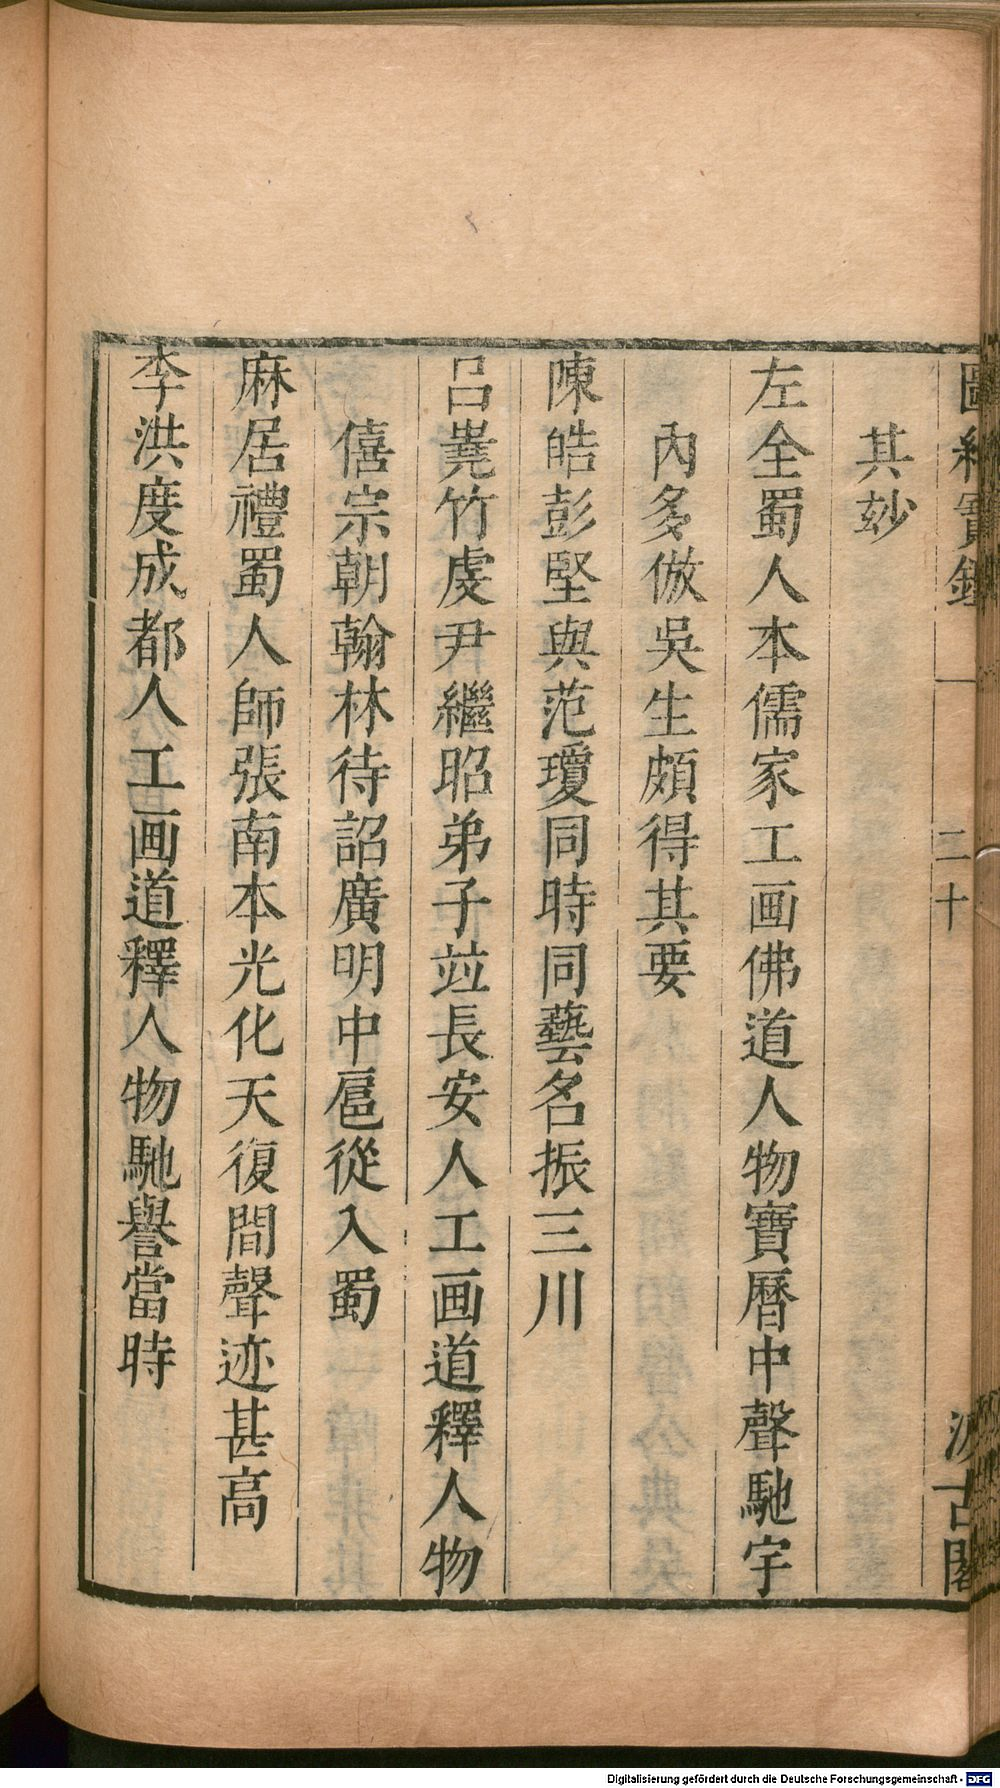 圖繪寶鑑 二十 汲古閣
其玅
左全蜀人本儒家工画佛道人物寶曆中聲馳宇
內多倣吳生頗得其要
陳皓彭堅與范瓊同時同藝名振三川
呂嶤竹虔尹繼昭弟子竝長安人工画道釋人物
僖宗朝翰林待詔廣明中扈從入蜀
麻居禮蜀人師張南本光化天復間聲迹甚高
李洪度成都人工画道釋人物馳譽當時
Digitalisierung gefördert durch die Deutsche Forschungsgemeinschaft - DFG